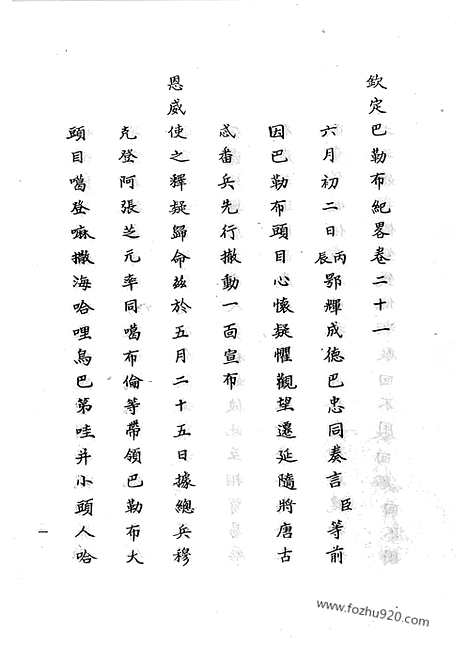 欽定巴勒布紀畧卷二十一
六月初二日丙辰鄂輝成德巴忠同奏言臣等前
因巴勒布頭目心懷疑懼觀望遷延隨將唐古
忒番兵先行撤動一面宣布
恩威使之釋疑歸命茲於五月二十五日據總兵穆
克登阿張芝元率同噶布倫等帶領巴勒布大
頭目噶登嘛撒海哈哩烏巴第哇并小頭人哈
一
www.fozhu920.com